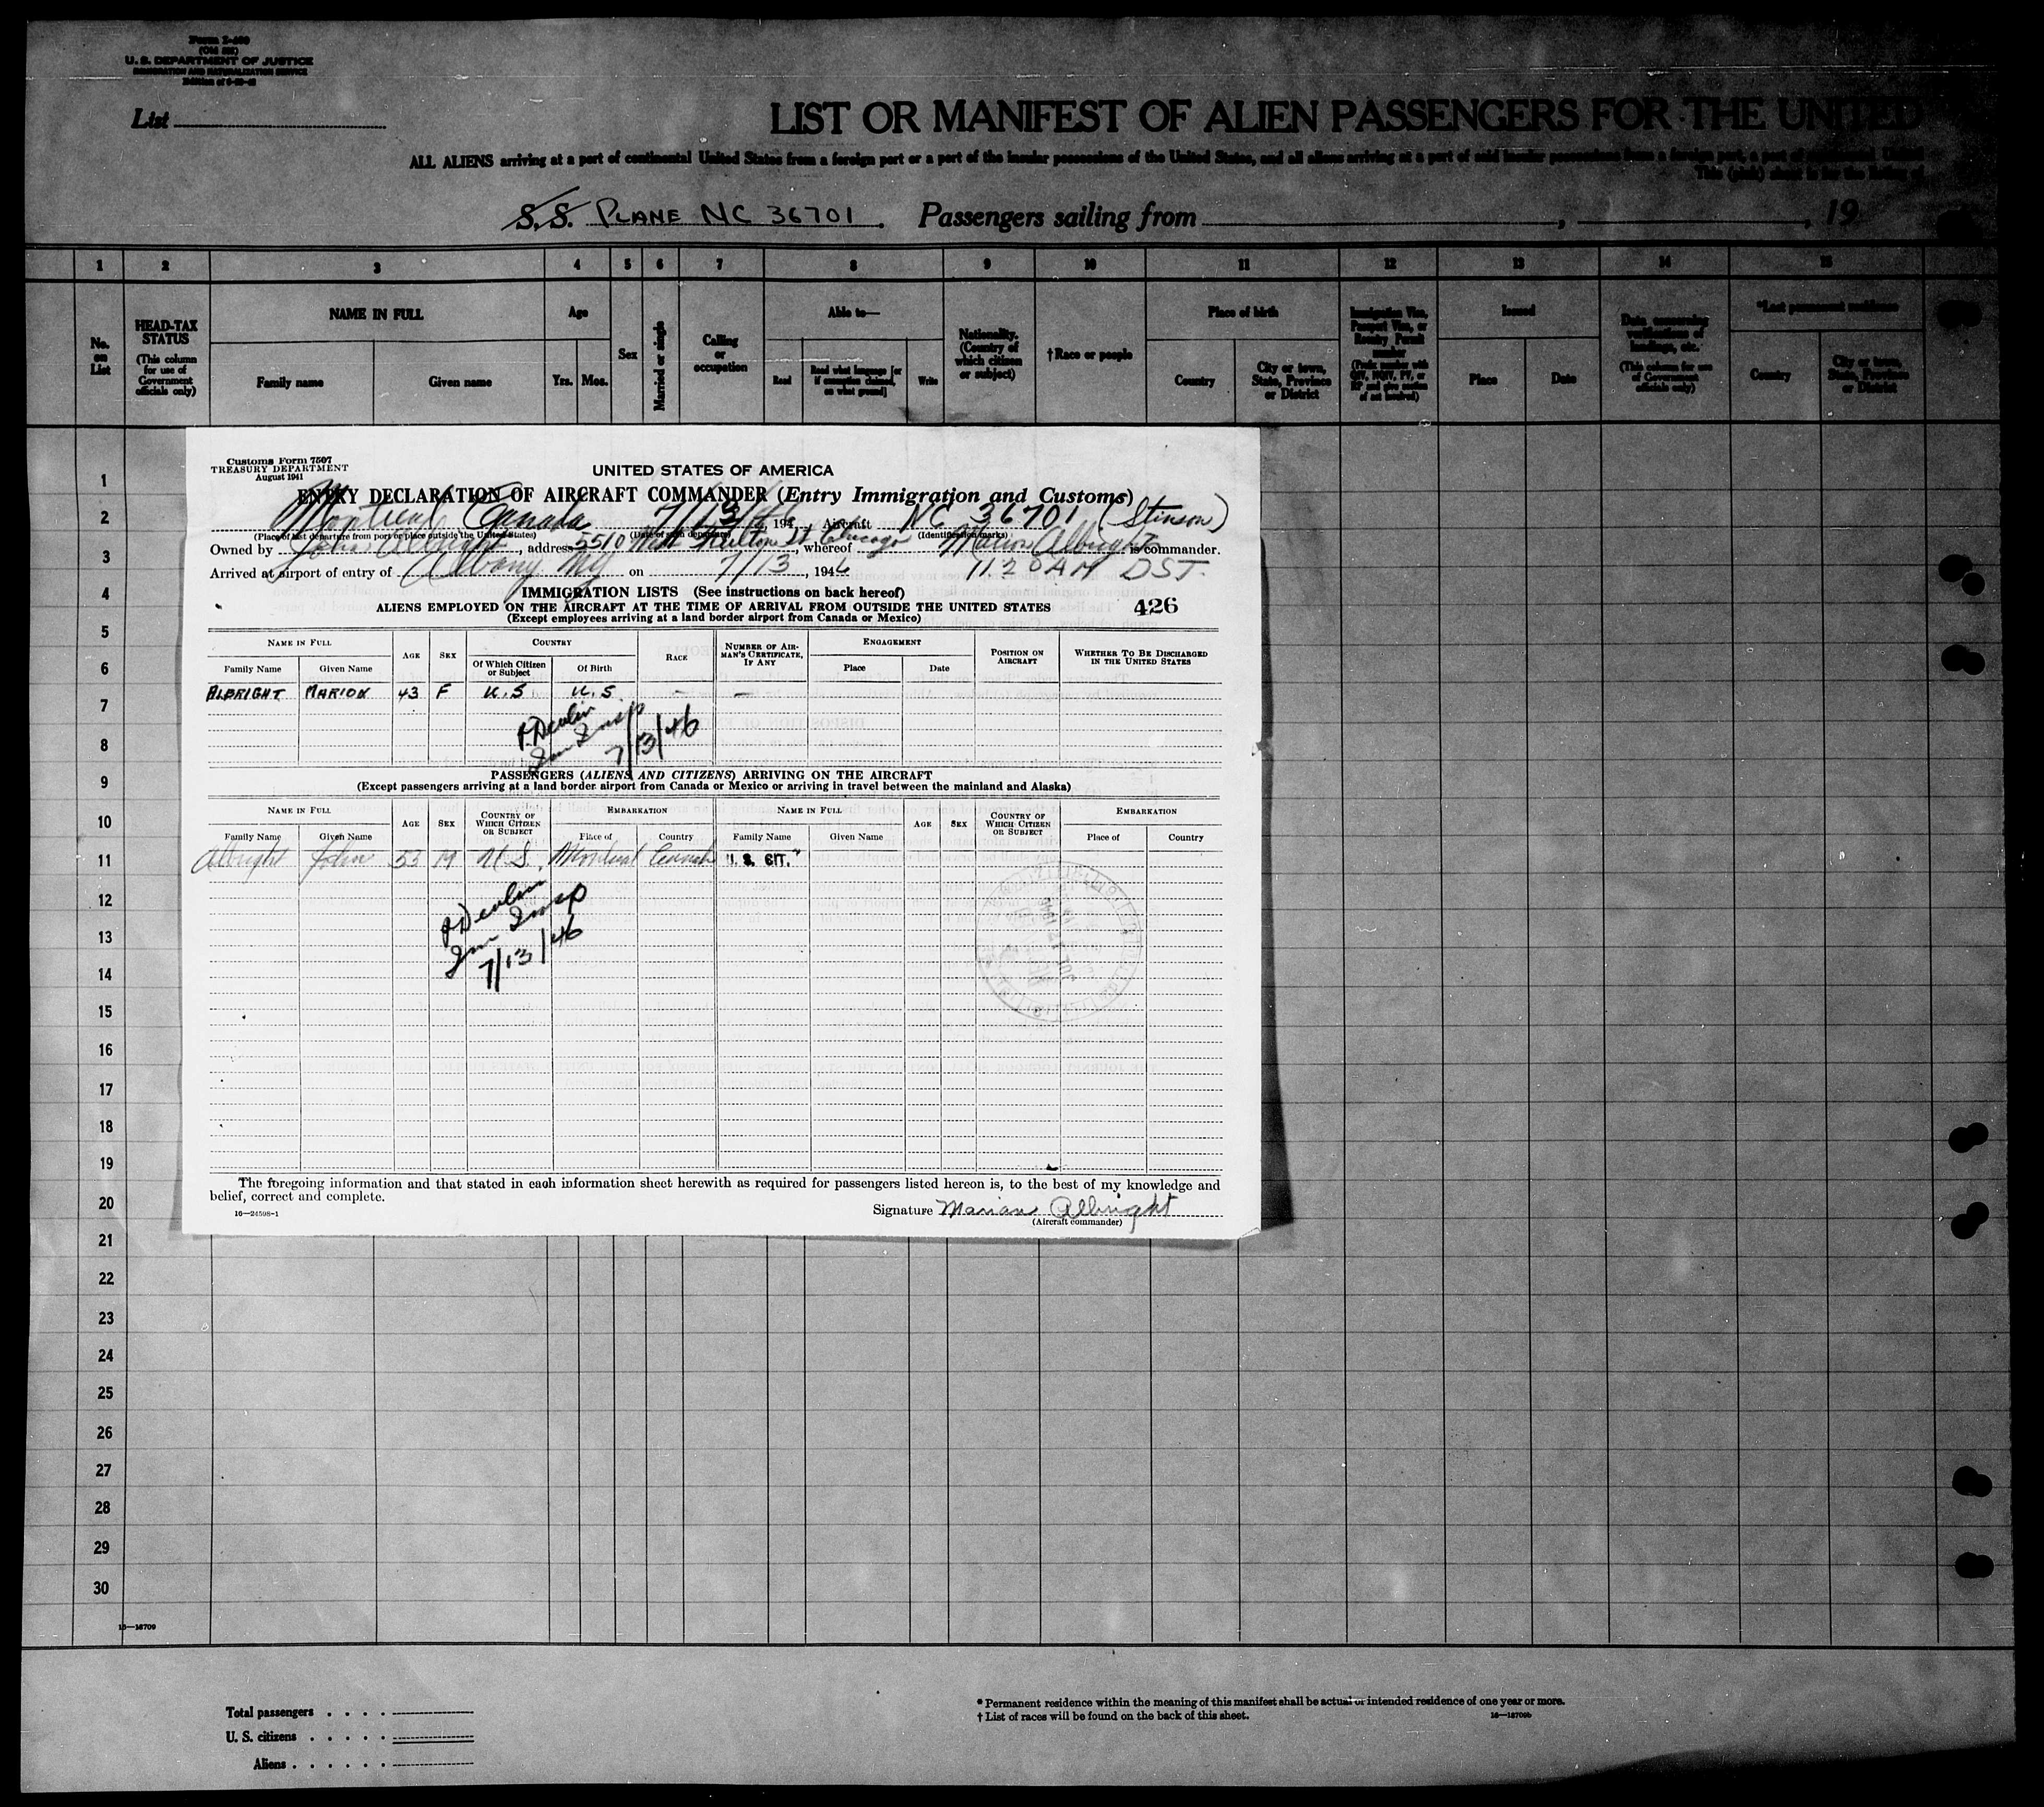 Form I-480
(Old 500)
U. S. DEPARTMENT OF JUSTICE
IMMIGRATION AND NATURALIZATION SERVICE
List
LIST OR MANIFEST OF ALIEN PASSENGERS FOR THE UNITED
ALL ALIENS arriving at a port of continental United States from a foreign port or a port of the insular possessions of the United States, and all aliens arriving at a port of said insular possessions from a foreign port, a port of continental United
This (pink) sheet is for the listing of
S.S. PLANE NC 36701. Passengers sailing from , , 19
1 2 3 4 5 6 7 8 9 10 11 12 13 14 15
No. on List
HEAD-TAX STATUS (This column for use of Government officials only)
NAME IN FULL
Family name Given name
Age
Yrs. Mos.
Sex
Married or single
Calling or occupation
Able to—
Read Read what language [or if exemption claimed, on what ground] Write
Nationality. (Country of which citizen or subject)
†Race or people
Place of birth
Country City or town, State, Province or District
Immigration Visa, Passport Visa, or Reentry Permit number
Issued
Place Date
Data concerning verifications of landings, etc. (This column for use of Government officials only)
*Last permanent residence
Country City or town, State, Province or District
Customs Form 7507
TREASURY DEPARTMENT
August 1941
UNITED STATES OF AMERICA
ENTRY DECLARATION OF AIRCRAFT COMMANDER (Entry Immigration and Customs)
Montreal Canada 7/13/46, 194 , Aircraft NC 36701 (Stinson)
(Place of last departure from port or place outside the United States) (Date of such departure) (Identification marks)
Owned by John Albright, address 5510 West Fulton St Chicago, whereof Marion Albright is commander.
Arrived at airport of entry of Albany NY on 7/13, 1946 11 20 AM DST.
IMMIGRATION LISTS (See instructions on back hereof)
ALIENS EMPLOYED ON THE AIRCRAFT AT THE TIME OF ARRIVAL FROM OUTSIDE THE UNITED STATES 426
(Except employees arriving at a land border airport from Canada or Mexico)
NAME IN FULL AGE SEX COUNTRY RACE NUMBER OF AIRMAN'S CERTIFICATE, IF ANY ENGAGEMENT POSITION ON AIRCRAFT WHETHER TO BE DISCHARGED IN THE UNITED STATES
Family Name Given Name Of Which Citizen or Subject Of Birth Place Date
ALBRIGHT MARION 43 F U.S U.S. - -
P. Devlin
Imm Insp
7/13/46
PASSENGERS (ALIENS AND CITIZENS) ARRIVING ON THE AIRCRAFT
(Except passengers arriving at a land border airport from Canada or Mexico or arriving in travel between the mainland and Alaska)
NAME IN FULL AGE SEX COUNTRY OF WHICH CITIZEN OR SUBJECT EMBARKATION NAME IN FULL AGE SEX COUNTRY OF WHICH CITIZEN OR SUBJECT EMBARKATION
Family Name Given Name Place of Country Family Name Given Name Place of Country
Albright John 53 M U.S. Montreal Canada "U. S. CIT."
P Devlin
Imm Insp
7/13/46
The foregoing information and that stated in each information sheet herewith as required for passengers listed hereon is, to the best of my knowledge and
belief, correct and complete.
16—24598-1
Signature Marion Albright
(Aircraft commander)
1
2
3
4
5
6
7
8
9
10
11
12
13
14
15
16
17
18
19
20
21
22
23
24
25
26
27
28
29
30
16—18709
Total passengers . . . .
U. S. citizens . . . . .
Aliens . . . . . .
* Permanent residence within the meaning of this manifest shall be actual or intended residence of one year or more.
† List of races will be found on the back of this sheet.
16—18709b